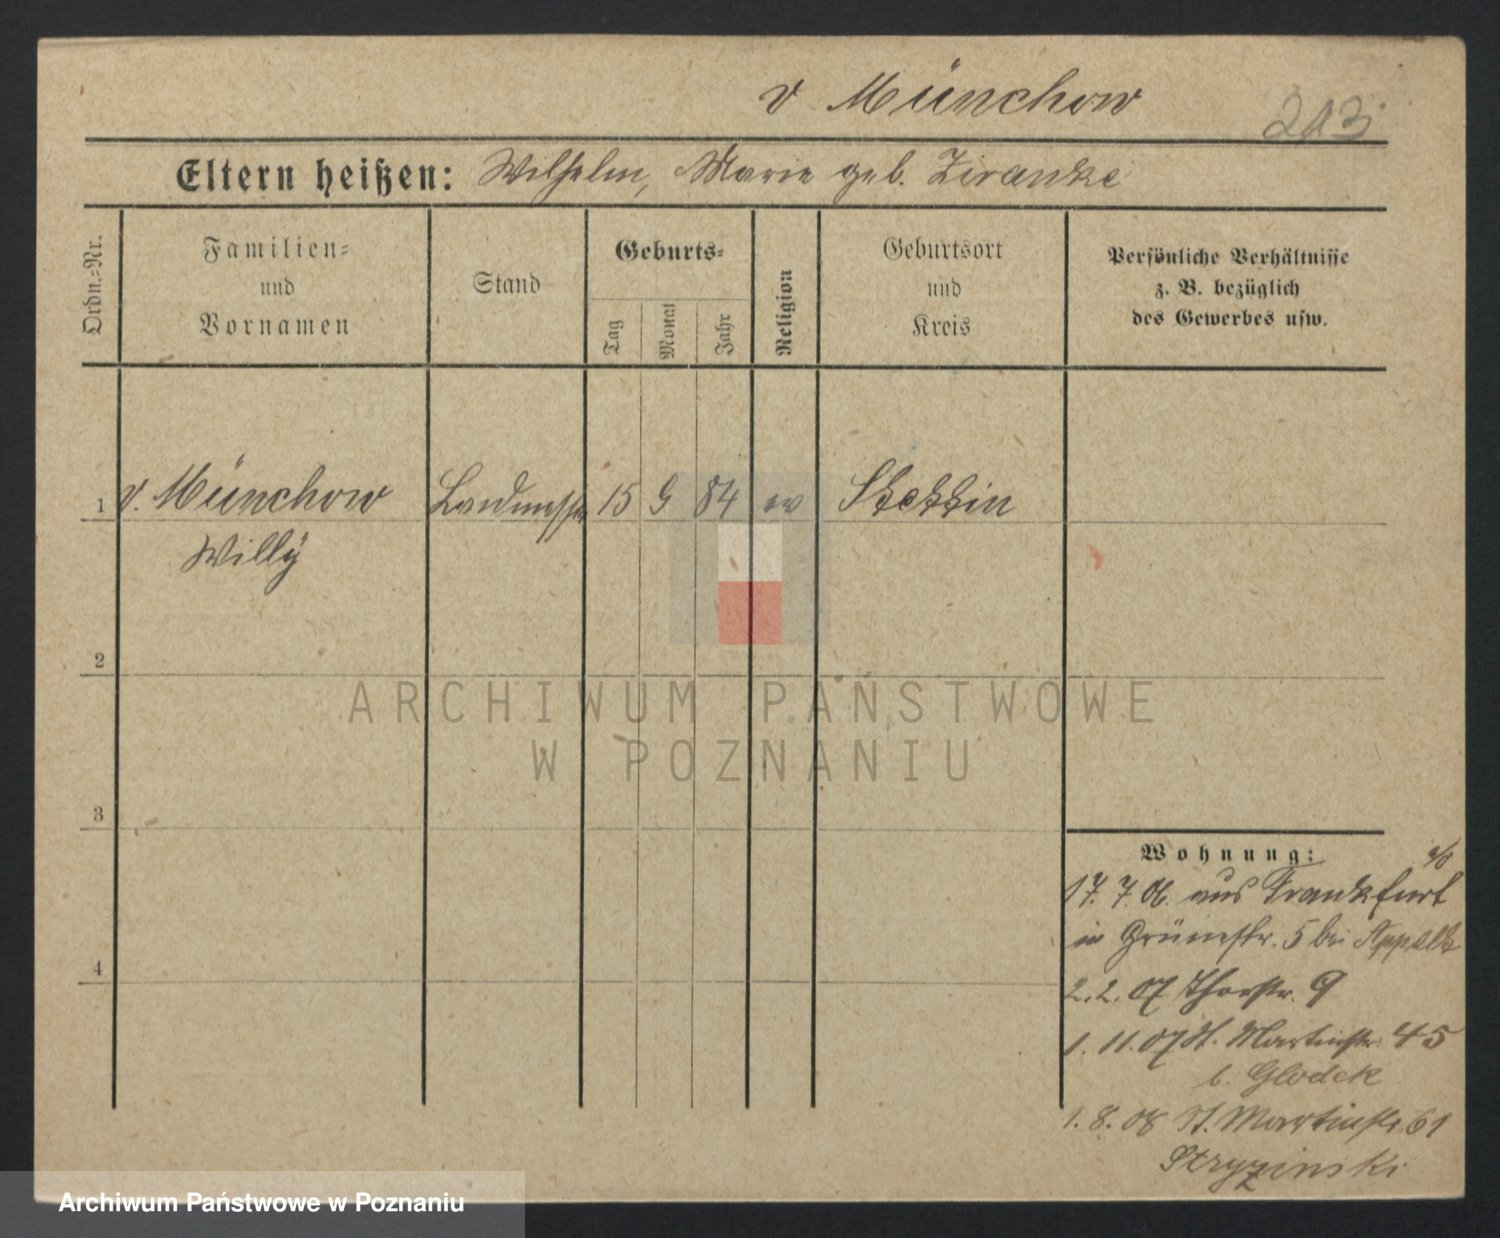 v Münchow
213
Eltern heißen: Wilhelm, Marie geb. Ziranke
Ordn.-Nr.
Familien-
und
Vornamen
Stand
Geburts-
Tag
Monat
Jahr
Religion
Geburtsort
und
Kreis
Persönliche Verhältnisse
z. B. bezüglich
des Gewerbes usw.
1 v. Münchow Landmesser 15 9 84 ev Stettin
Willy
2
3
4
Wohnung:
a/O
17. 7. 06. aus Frankfurt
in Grünestr. 5 bei Appelt
2. 2. 07 Thorstr. 9
1. 11. 07 St. Martinstr. 45
b. Glodek
1. 8. 08 St. Martinstr. 61
Stryzinski
ARCHIWUM PAŃSTWOWE
W POZNANIU
Archiwum Państwowe w Poznaniu